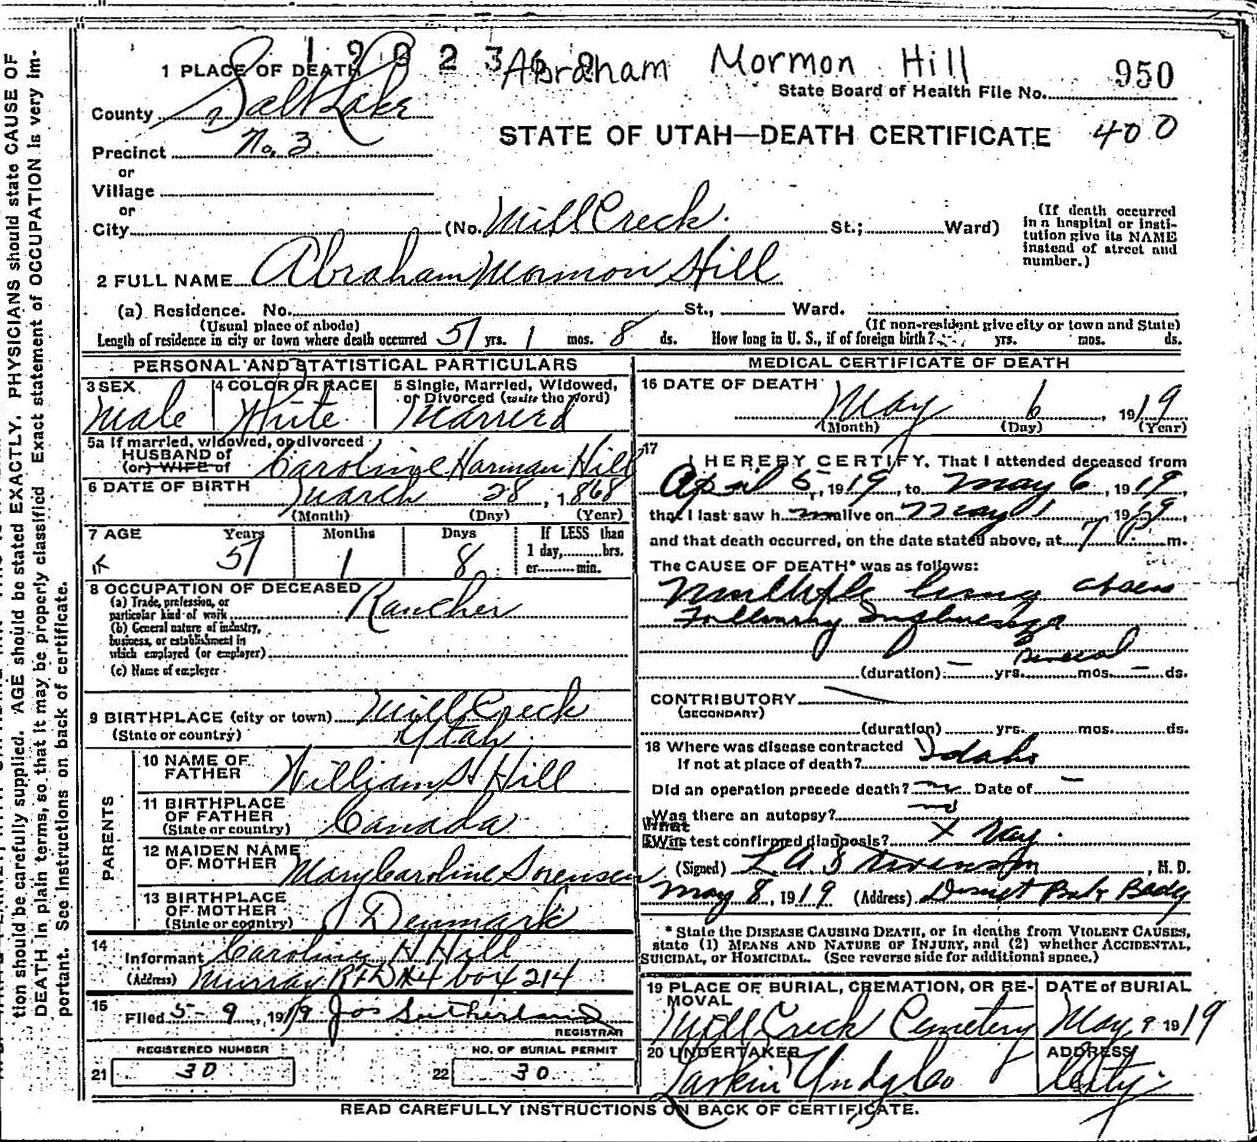 Abraham Mormon Hill
950
1 PLACE OF DEATH
State Board of Health File No.
County Salt Lake
STATE OF UTAH—DEATH CERTIFICATE 400
Precinct No. 3
or
Village
or
City (No. Mill Creek St.; Ward)
(If death occurred in a hospital or insti-
tution give its NAME
instead of street and
number.)
2 FULL NAME Abraham Mormon Hill
(a) Residence. No. St., Ward.
(Usual place of abode) (If non-resident give city or town and State)
Length of residence in city or town where death occurred 51 yrs. 1 mos. 8 ds. How long in U. S., if of foreign birth? yrs. mos. ds.
PERSONAL AND STATISTICAL PARTICULARS
3 SEX Male
4 COLOR OR RACE White
5 Single, Married, Widowed,
or Divorced (write the word)
Married
5a If married, widowed, or divorced
HUSBAND of
(or) WIFE of Caroline Harman Hill
6 DATE OF BIRTH March 28, 1868
(Month) (Day) (Year)
7 AGE Years Months Days If LESS than
51 1 8 1 day, hrs.
or min.
8 OCCUPATION OF DECEASED
(a) Trade, profession, or
particular kind of work Rancher
(b) General nature of industry,
business, or establishment in
which employed (or employer)
(c) Name of employer
9 BIRTHPLACE (city or town) Mill Creek
(State or country) Utah
PARENTS
10 NAME OF
FATHER William H Hill
11 BIRTHPLACE
OF FATHER
(State or country) Canada
12 MAIDEN NAME
OF MOTHER Mary Caroline Sorensen
13 BIRTHPLACE
OF MOTHER
(State or country) Denmark
14
Informant Caroline H Hill
(Address) Murray RFD #4 box 214
15
Filed 5-9, 1919 Jos Sutherland
REGISTRAR
REGISTERED NUMBER
21 30
NO. OF BURIAL PERMIT
22 30
MEDICAL CERTIFICATE OF DEATH
16 DATE OF DEATH
May 6, 1919
(Month) (Day) (Year)
17
I HEREBY CERTIFY, That I attended deceased from
April 5, 1919, to May 6, 1919,
that I last saw h im alive on May 1, 1919,
and that death occurred, on the date stated above, at 7 P. m.
The CAUSE OF DEATH* was as follows:
Multiple lung abscess
Following Influenza
(duration) yrs. Several mos. ds.
CONTRIBUTORY
(SECONDARY)
(duration) yrs. mos. ds.
18 Where was disease contracted
If not at place of death? Idaho
Did an operation precede death? no Date of
Was there an autopsy? no
What test confirmed diagnosis? X Ray
(Signed) M. D.
May 8, 1919 (Address) Deseret Bank Bldg
* State the DISEASE CAUSING DEATH, or in deaths from VIOLENT CAUSES,
state (1) MEANS AND NATURE OF INJURY, and (2) whether ACCIDENTAL,
SUICIDAL, or HOMICIDAL. (See reverse side for additional space.)
19 PLACE OF BURIAL, CREMATION, OR RE-
MOVAL
Mill Creek Cemetery
DATE of BURIAL
May 9 1919
20 UNDERTAKER
Larkin Undg Co
ADDRESS
City
READ CAREFULLY INSTRUCTIONS ON BACK OF CERTIFICATE.
tion should be carefully supplied. AGE should be stated EXACTLY. PHYSICIANS should state CAUSE OF
DEATH in plain terms, so that it may be properly classified. Exact statement of OCCUPATION is very im-
portant. See instructions on back of certificate.